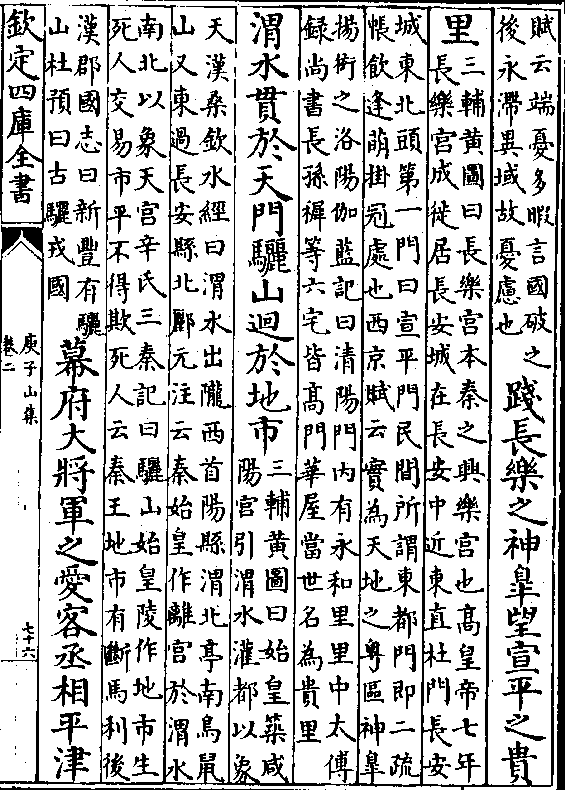 賦云端憂多暇言國破之
後永滯異域故憂慮也
踐長樂之神臯望宣平之貴
里
三輔黄圖曰長樂宮本秦之興樂宮也髙皇帝七年
長樂宮成徙居長安城在長安中近東直杜門長安
城東北頭第一門曰宣平門民間所謂東都門即二疏
帳飲逢萌掛冠處也西京賦云實為天地之粤區神臯
揚衒之洛陽伽藍記曰清陽門内有永和里里中太傅
録尚書長孫稺等六宅皆髙門華屋當世名為貴里
渭水貫於天門驪山迴於地市
三輔黄圖曰始皇築咸
陽宮引渭水灌都以象
天漢桑欽水經曰渭水出隴西首陽縣渭北亭南鳥鼠
山又東過長安縣北酈元注云秦始皇作離宮於渭水
南北以象天宮辛氏三秦記曰驪山始皇陵作地市生
死人交易市平不得欺死人云秦王地市有斷馬利後
漢郡國志曰新豐有驪
山杜預曰古驪戎國
幕府大將軍之愛客丞相平津
欽定四庫全書
庾子山集
卷二
七十六